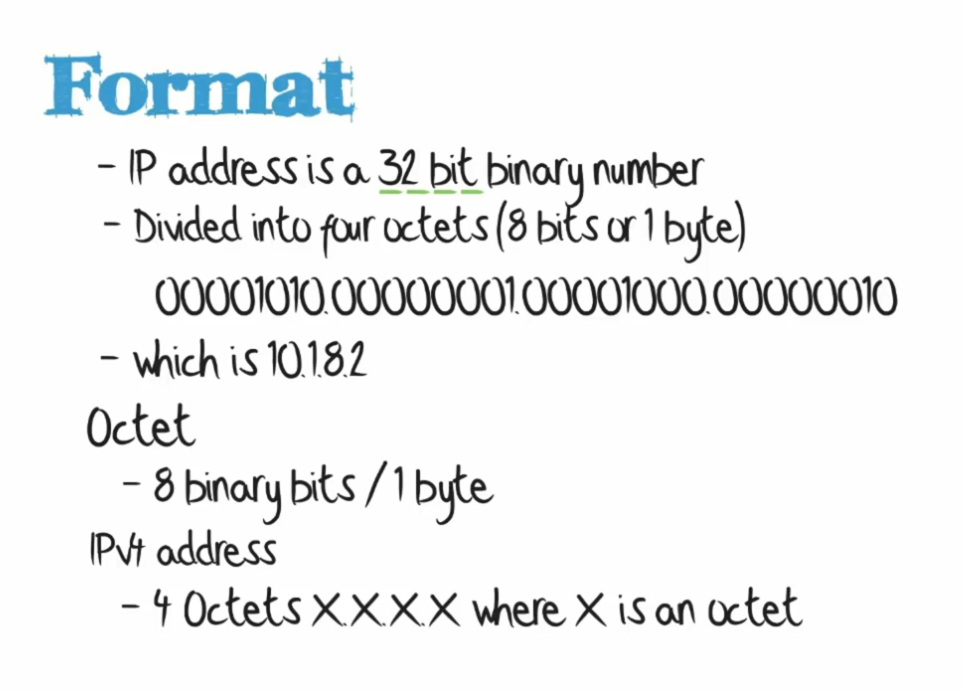 Format
- IP address is a 32 bit binary number
- Divided into four octets (8 bits or 1 byte)
00001010.00000001.00001000.00000010
- which is 10.1.8.2
Octet
- 8 binary bits / 1 byte
IPv4 address
- 4 Octets X.X.X.X where X is an octet